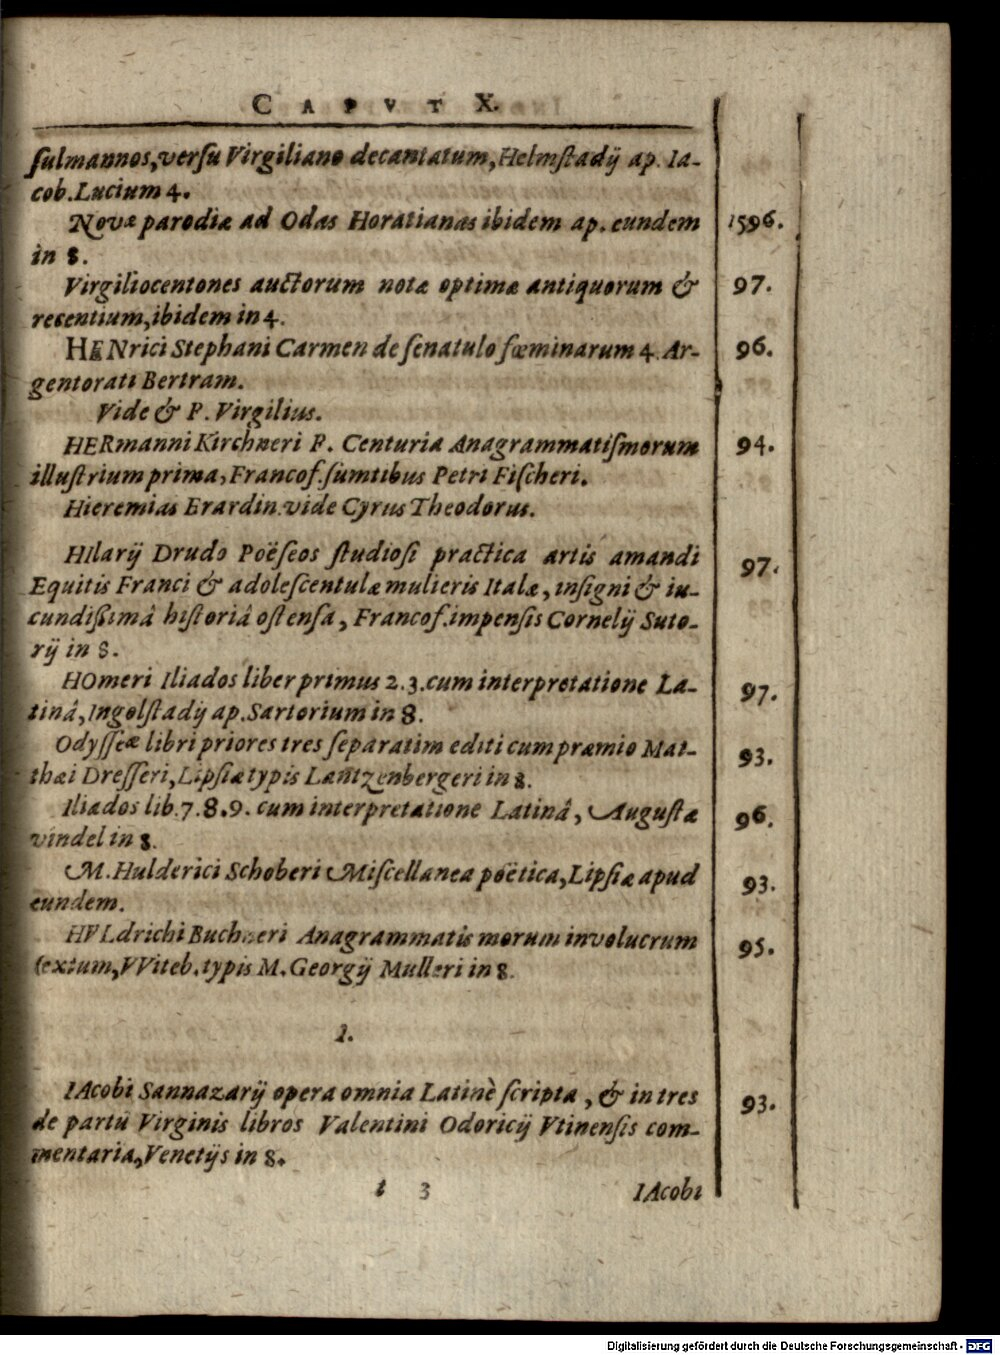 CAPVT X.
sulmannos, versu Virgiliano decantatum, Helmstadij ap. Ia-
cob. Lucium 4.
Novæ parodiæ ad Odas Horatianas ibidem ap. eundem 1596.
in 8.
Virgiliocentones auctorum notæ optimæ antiquorum & 97.
recentium, ibidem in 4.
HENrici Stephani Carmen de senatulo fœminarum 4. Ar- 96.
gentorati Bertram.
Vide & P. Virgilius.
HERmanni Kirchneri P. Centuria Anagrammatismorum 94.
illustrium prima, Francof. sumtibus Petri Fischeri.
Hieremias Erardin. vide Cyrus Theodorus.
HIlarij Drudo Poëseos studiosi practica artis amandi 97.
Equitis Franci & adolescentulæ mulieris Italæ, insigni & iu-
cundissimâ historiâ ostensa, Francof. impensis Cornelij Suto-
rij in 8.
HOmeri Iliados liber primus 2. 3. cum interpretatione La- 97.
tinâ, Ingolstadij ap. Sartorium in 8.
Odysseæ libri priores tres separatim editi cum præmio Mat- 93.
thæi Dresseri, Lipsiæ typis Lantzenbergeri in 8.
Iliados lib. 7. 8. 9. cum interpretatione Latinâ, Augustæ 96.
vindel in 8.
M. Hulderici Schoberi Miscellanea poëtica, Lipsiæ apud 93.
eundem.
HVLdrichi Buchneri Anagrammatis morum involucrum 95.
sextum, VViteb. typis M. Georgij Mulleri in 8.
I.
IAcobi Sannazarij opera omnia Latinè scripta, & in tres 93.
de partu Virginis libros Valentini Odoricij Vtinensis com-
mentaria, Venetijs in 8.
i 3 IAcobi
Digitalisierung gefördert durch die Deutsche Forschungsgemeinschaft - DFG